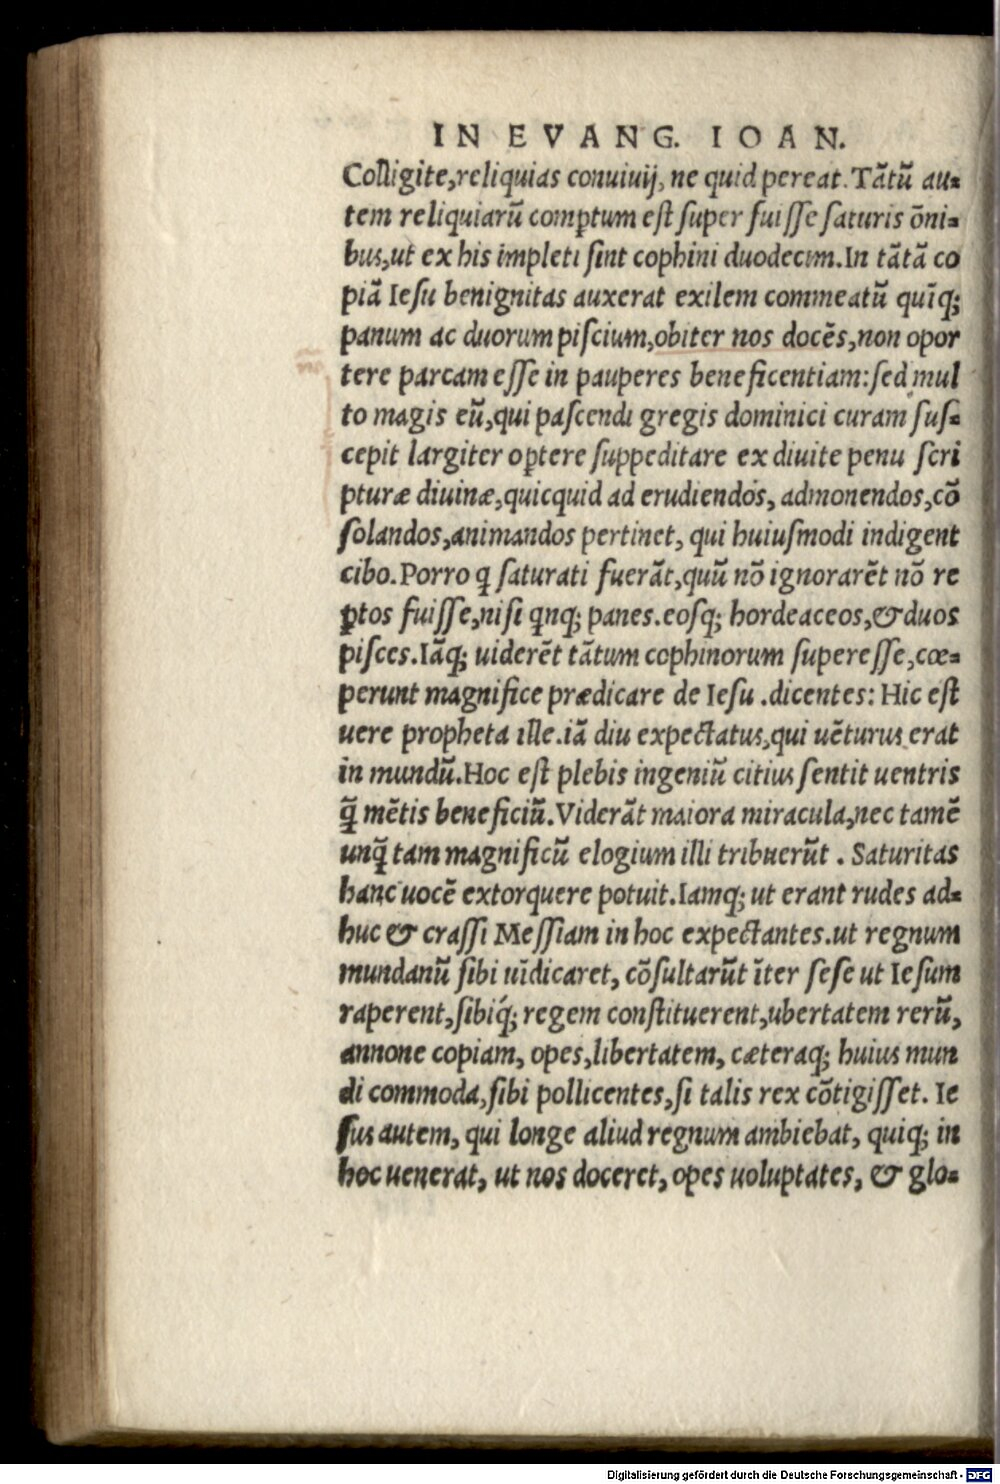 IN EVANG. IOAN.
Colligite,reliquias conuiuij, ne quid pereat. Tãtũ au-
tem reliquiarũ comꝑtum est super fuisse saturis õni-
bus,ut ex his impleti sint cophini duodecim.In tãtã co
piã Iesu benignitas auxerat exilem commeatũ quĩq;
panum ac duorum piscium,obiter nos docẽs,non opor
tere parcam esse in pauperes beneficentiam:sed mul
to magis eũ,qui pascendi gregis dominici curam sus-
cepit largiter oꝑtere suppeditare ex diuite penu scri
pturæ diuinæ,quicquid ad erudiendos, admonendos,cõ
solandos,animandos pertinet, qui huiusmodi indigent
cibo.Porro q saturati fuerãt,quũ nõ ignorarẽt nõ re
ꝑtos fuisse,nisi qnq; panes.eosq; hordeaceos,&duos
pisces.Iãq; uiderẽt tãtum cophinorum superesse,cœ-
perunt magnifice prædicare de Iesu .dicentes: Hic est
uere propheta ille.iã diu expectatus,qui uẽturus erat
in mundũ.Hoc est plebis ingeniũ citius sentit uentris
q̃ mẽtis beneficiũ.Viderãt maiora miracula,nec tamẽ
unq̃ tam magnificũ elogium illi tribuerũt . Saturitas
hanc uocẽ extorquere potuit.Iamq; ut erant rudes ad-
huc & crassi Messiam in hoc expectantes.ut regnum
mundanũ sibi uĩdicaret, cõsultarũt ĩter sese ut Iesum
raperent,sibiq́; regem constituerent,ubertatem rerũ,
annone copiam, opes,libertatem, cæteraq; huius mun
di commoda,sibi pollicentes,si talis rex cõtigisset. Ie
sus autem, qui longe aliud regnum ambiebat, quiq; in
hoc uenerat, ut nos doceret, opes uoluptates, & glo-
Digitalisierung gefördert durch die Deutsche Forschungsgemeinschaft - DFG